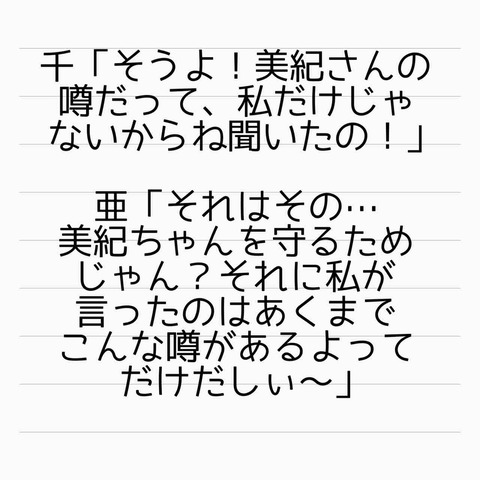 千「そうよ！美紀さんの
噂だって、私だけじゃ
ないからね聞いたの！」
亜「それはその…
美紀ちゃんを守るため
じゃん？それに私が
言ったのはあくまで
こんな噂があるよって
だけだしぃ〜」